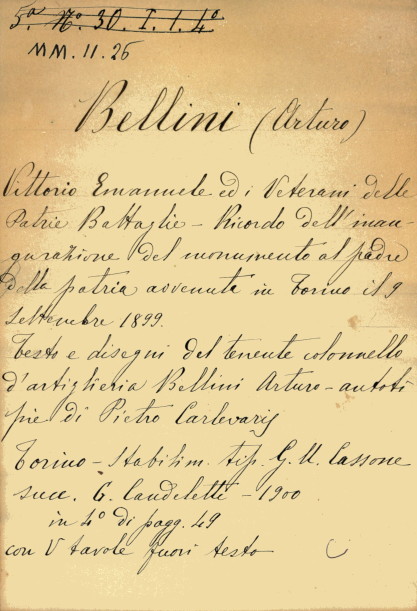 5.ª Nº 30. I. 1. 4º.
MM. 11. 26
Bellini (Arturo)
Vittorio Emanuele ed i Veterani delle
Patrie Battaglie - Ricordo dell'inau-
gurazione del monumento al padre
della patria avvenuta in Torino il 9
Settembre 1899.
Testo e disegni del tenente colonnello
d'artiglieria Bellini Arturo - autoti
pie di Pietro Carlevaris
Torino - Stabilim. tip. G. U. Cassone
succ. G. Candeletti - 1900
in 4º di pagg. 49
con V tavole fuori testo